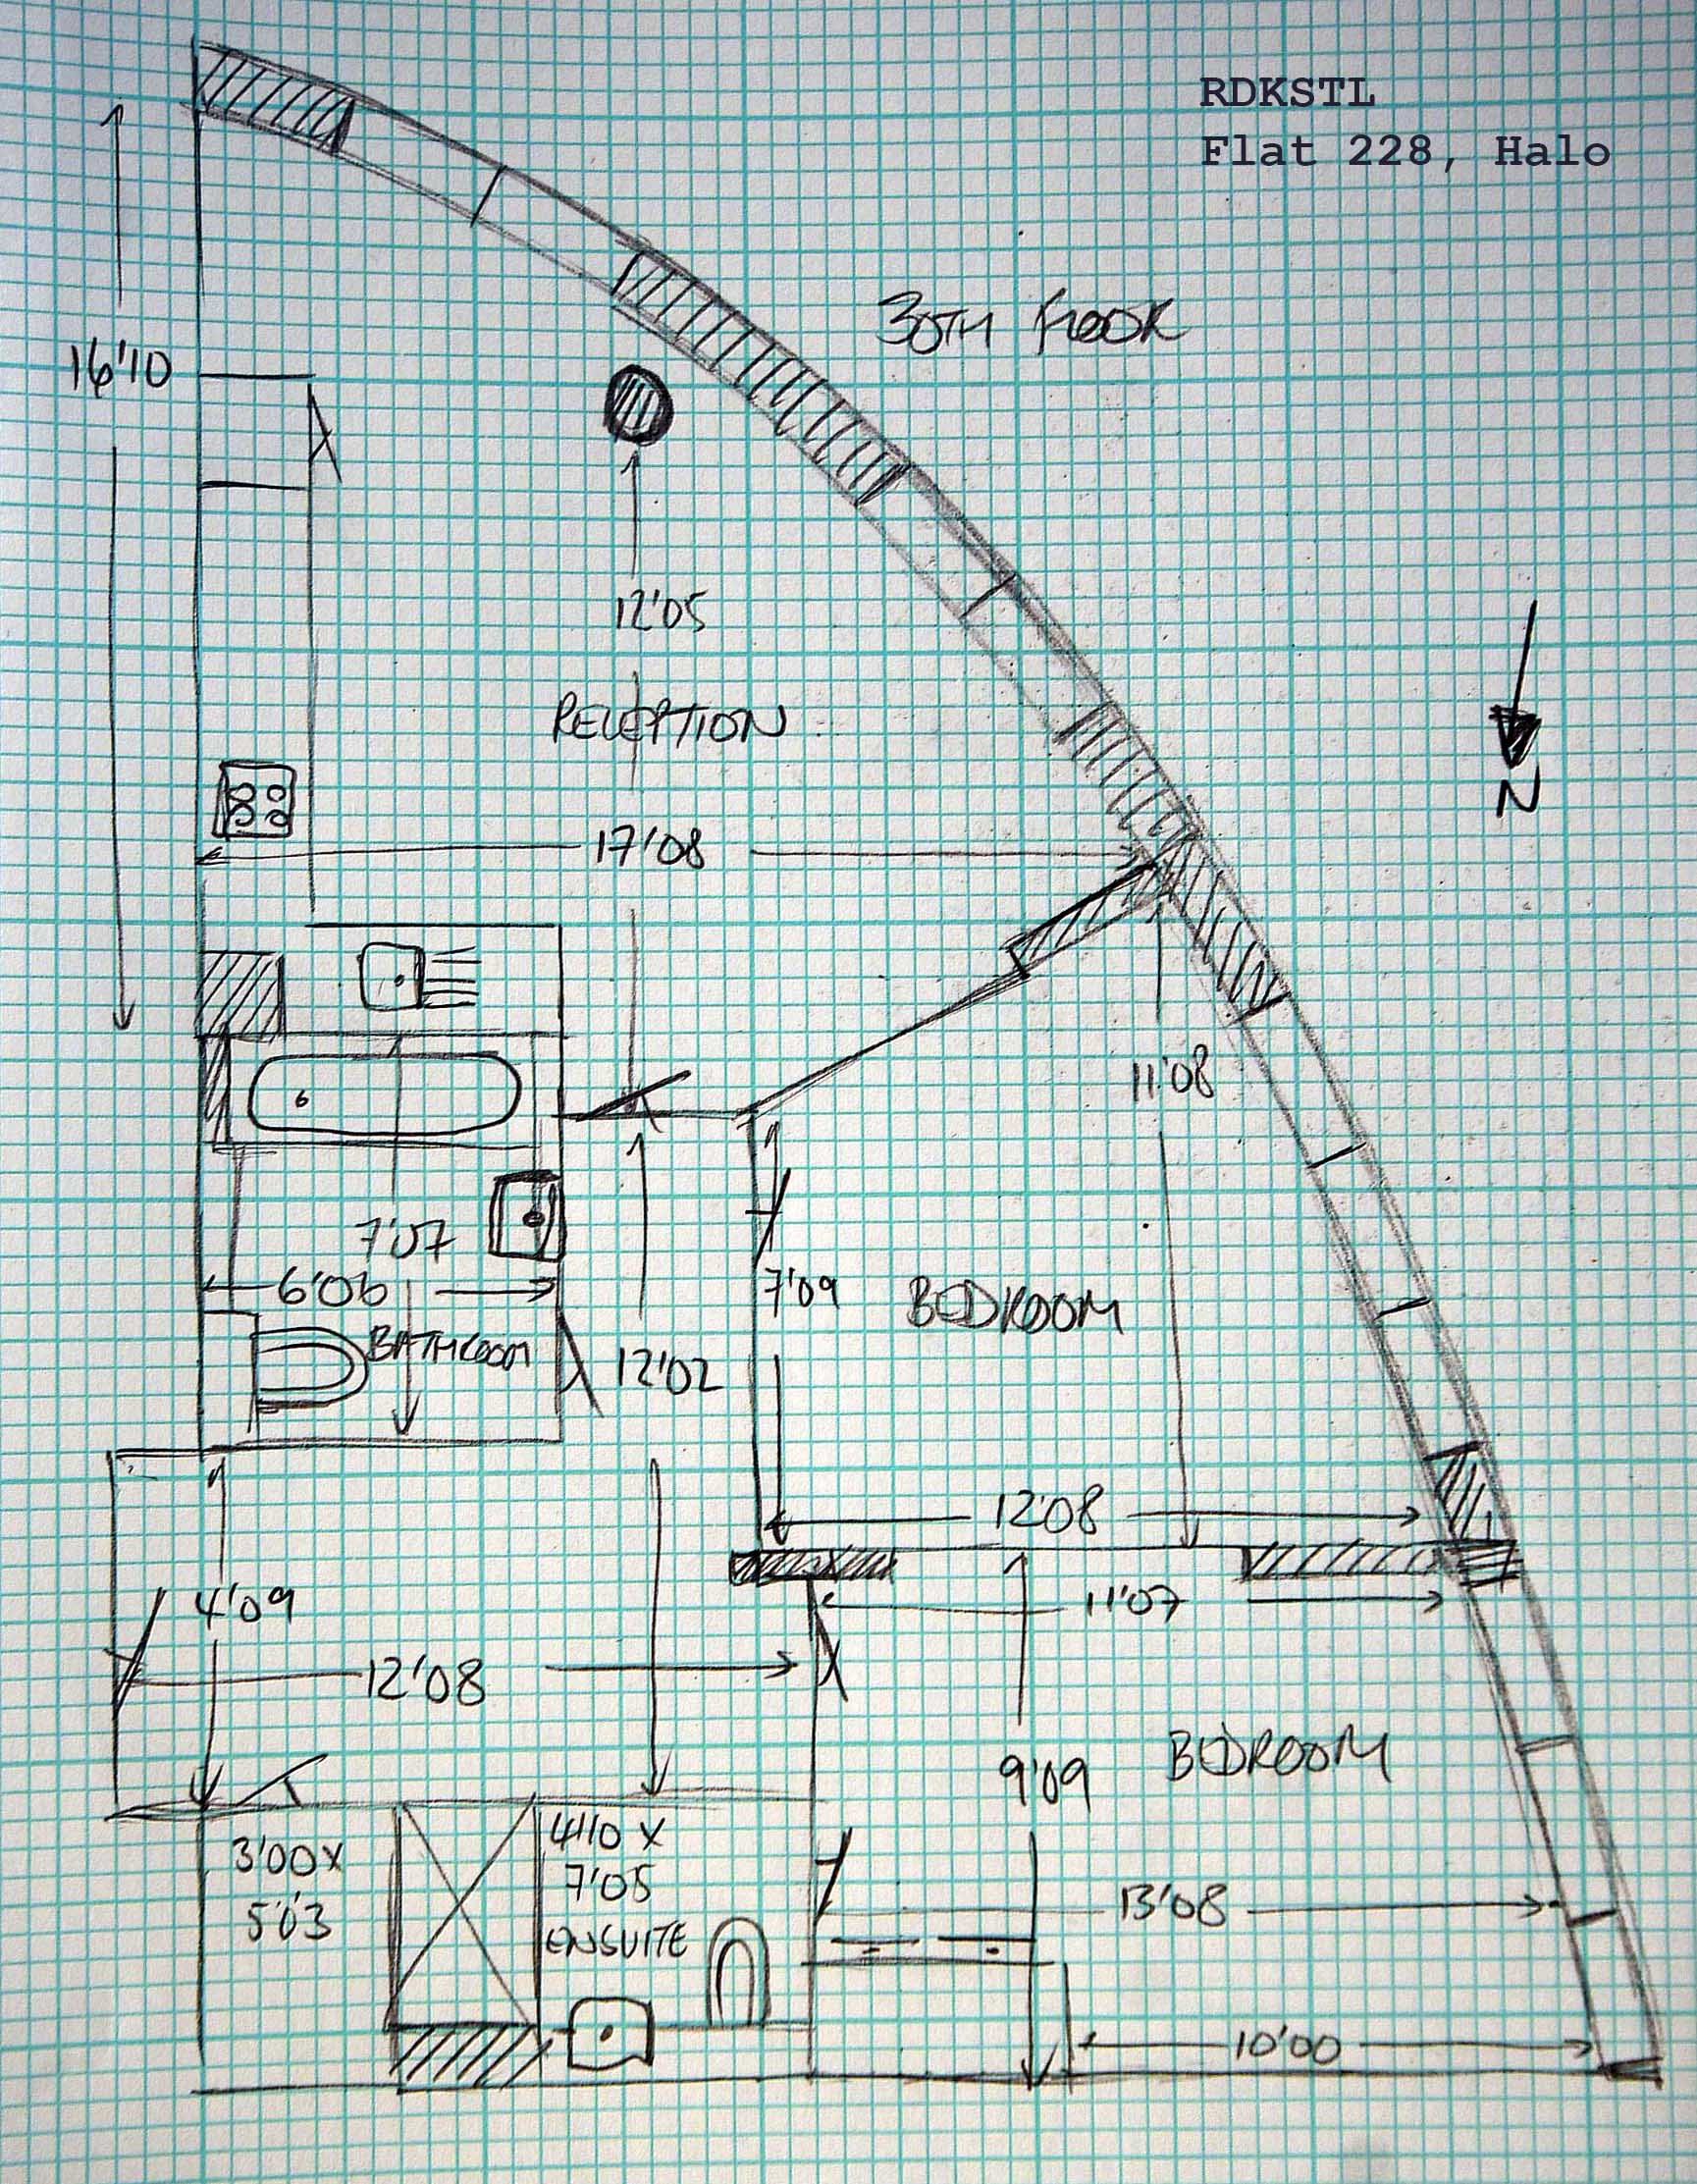 RDKSTL
Flat 228, Halo
30TH FLOOR
16'10
12'05
RECEPTION
N
17'08
11'08
7'07
6'06
7'09
BEDROOM
BATHROOM
12'02
12'08
4'09
11'07
12'08
BEDROOM
9'09
3'00 X
5'03
4'10 X
7'05
ENSUITE
13'08
10'00